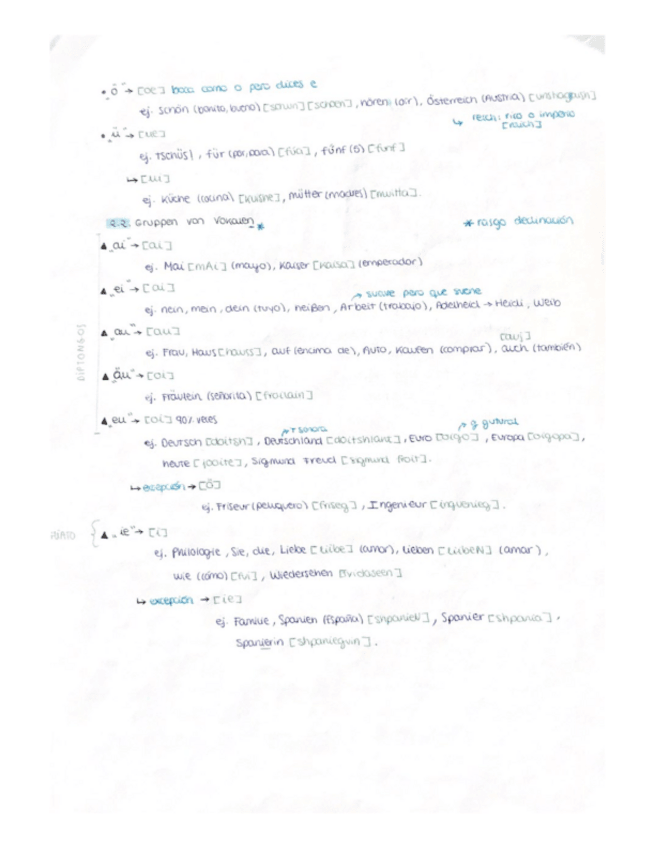 • "ö" → [oe] boca como o pero dices e
ej. Schön (bonito, bueno) [schoen], hören (oir), Österreich (Austria)
↳ reich: rico o imperio
[raich]
• "ü" → [ue]
ej. Tschüs!, für (por, para), fünf (5) [fünf]
↳ [ui]
ej. Küche (cocina), Mütter (madres) [muitta].
2.2. Gruppen von Vokalen * * rasgo declinación
▲ "ai" → [ai]
ej. Mai [mai] (mayo), Kaiser [kaisa] (emperador)
▲ "ei" → [ai]
↗ suave pero que suene
ej. nein, mein, dein (tuyo), heißen, Arbeit (trabajo), Adelheid → Heidi, Weib
DIPTONGOS
▲ "au" → [au]
[auj]
ej. Frau, Haus [hauss], auf (encima de), Auto, kaufen (comprar), auch (también)
▲ "äu" → [oi]
ej. Fräulein (señorita) [froilain]
▲ "eu" → [oi] 90% veces
↗ g gutural
ej. Deutsch [doitsh], Deutschland [doitshland], Euro [oigo], Europa [oigopa],
heute [joite], Sigmund Freud [sigmund froit].
↳ excepción → [ö]
ej. Friseur (peluquero), Ingenieur.
HIATO { ▲ "ie" → [i]
ej. Philologie, Sie, die, Liebe [liibe] (amor), lieben [liibeN] (amar),
wie (cómo) [vi], Wiedersehen [vidaseen]
↳ excepción → [ie]
ej. Familie, Spanien (España) [shpanieN], Spanier [shpania],
Spanierin [shpanieguin].